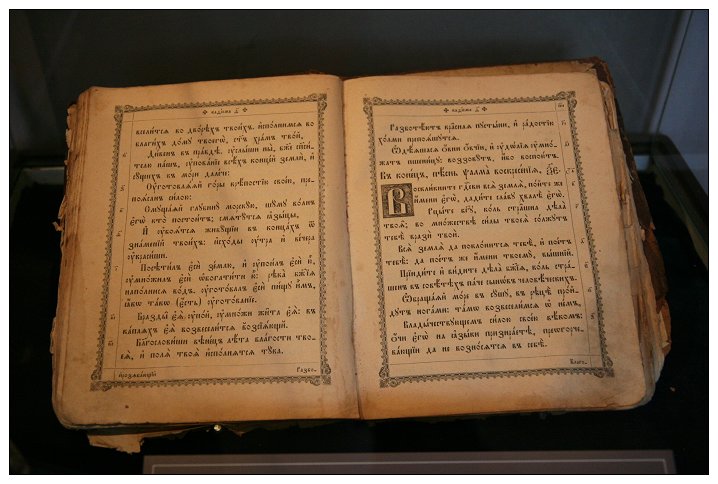 каѳісма д҃
вселится во дворѣхъ твоихъ. исполнимся во
благихъ дому твоегѡ, ст҃ъ храмъ твой,
Дивенъ въ правдѣ. ᲂуслыши ны, бж҃е сп҃си-
телю нашъ, ᲂупованіе всѣхъ концей земли, и
сущихъ въ мори далече:
Оуготовляяй горы крѣпостію своею, пре-
поясанъ силою:
Смущаяй глубину морскую, шуму волнъ
егѡ кто постоитъ; смятутся ꙗзыцы,
И ᲂубоятся живущіи въ концахъ ѿ
знаменій твоихъ: исходы ᲂутра и вечера
ᲂукрасиши.
Посѣтилъ еси землю, и ᲂупоилъ еси ю,
ᲂумножилъ еси ѡбогатити ю: рѣка бж҃ія
наполнися водъ. ᲂуготовалъ еси пищу имъ,
ꙗкѡ такѡ (есть) ᲂуготованіе.
Бразды еѧ ᲂупой, ᲂумножи жита еѧ: въ
капляхъ еѧ возвеселится возсіяющи.
Благословиши вѣнецъ лѣта благости тво-
еѧ, и поля твоя исполнятся тука.
Разбо-
каѳісма д҃
Разботѣютъ красная пустыни, и радостію
холми препояшутся.
Ѡдѣяшася ѻвни ѻвчіи, и ᲂудолія ᲂумно-
жатъ пшеницу: воззовутъ, ибо воспоютъ.
Въ конецъ, пѣснь ѱалма воскресенія, ѯ҃е.
Воскликните гд҃еви вся земля, пойте же
имени егѡ, дадите славу хвалѣ егѡ.
Рцыте бг҃у, коль страшна дѣла
твоя; во множествѣ силы твоея солжутъ
тебѣ врази твои.
Вся земля да поклонится тебѣ, и поетъ
тебѣ: да поетъ же имени твоему, вышній.
Пріидите и видите дѣла бж҃ія, коль стра-
шенъ въ совѣтѣхъ паче сынѡвъ человѣческихъ.
Ѡбращаяй море въ сушу, въ рѣцѣ прой-
дутъ ногами: тамѡ возвеселимся ѡ немъ,
Владычествующемъ силою своею вѣкомъ:
ѻчи егѡ на ꙗзыки призираетѣ, преѡгорче-
вающіи да не возносятся въ себѣ.
Благо-